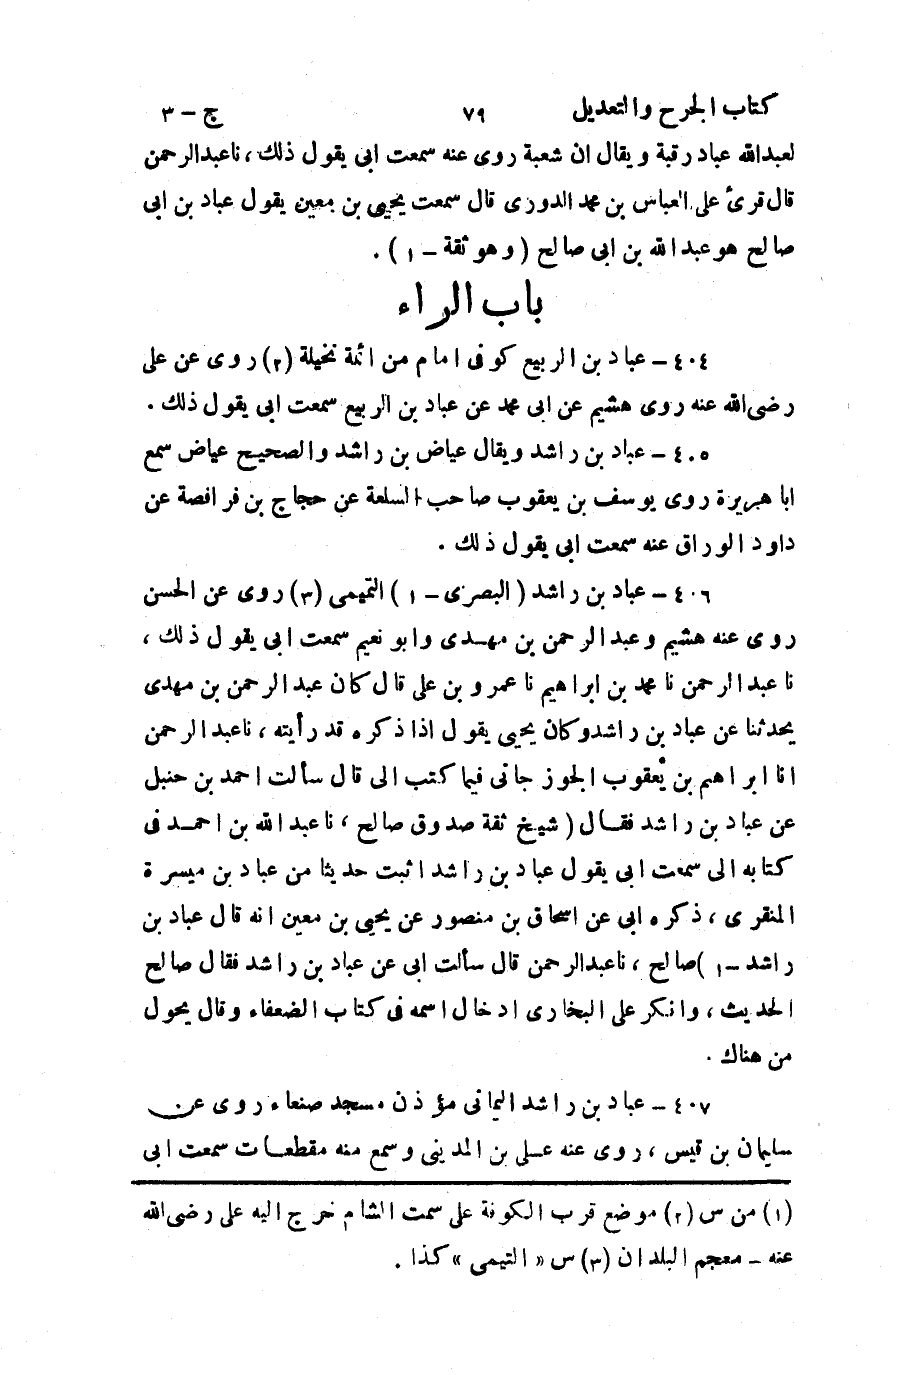 كتاب الجرح والتعديل ٧٩ ج – ٣
لعبدالله عباد رقبة ويقال ان شعبة روى عنه سمعت ابى يقول ذلك، نا عبدالرحمن
قال قرئ على العباس بن محمد الدورى قال سمعت يحيى بن معين يقول عباد بن ابى
صالح هو عبد الله بن ابى صالح (وهو ثقة – ١) .
باب الراء
٤٠٤ – عباد بن الربيع كوفى امام من ائمة نخيلة (٢) روى عن على
رضى الله عنه روى هشيم عن ابى محمد عن عباد بن الربيع سمعت ابى يقول ذلك .
٤٠٥ – عباد بن راشد ويقال عياض بن راشد والصحيح عياض سمع
ابا هريرة روى يوسف بن يعقوب صاحب السلعة عن حجاج بن فرافصة عن
داود الوراق عنه سمعت ابى يقول ذلك .
٤٠٦ – عباد بن راشد (البصرى – ١) التميمى (٣) روى عن الحسن
روى عنه هشيم وعبد الرحمن بن مهدى وابو نعيم سمعت ابى يقول ذلك،
نا عبد الرحمن نا محمد بن ابراهيم نا عمرو بن على قال كان عبد الرحمن بن مهدى
يحدثنا عن عباد بن راشد وكان يحيى يقول اذا ذكره قد رأيته، نا عبد الرحمن
انا ابراهيم بن يعقوب الجوزجانى فيما كتب الى قال سألت احمد بن حنبل
عن عباد بن راشد فقال (شيخ ثقة صدوق صالح، نا عبد الله بن احمد فى
كتابه الى سمعت ابى يقول عباد بن راشد اثبت حديثا من عباد بن ميسرة
المنقرى، ذكره ابى عن اسحاق بن منصور عن يحيى بن معين انه قال عباد بن
راشد – ١) صالح، نا عبدالرحمن قال سألت ابى عن عباد بن راشد فقال صالح
الحديث، وانكر على البخارى ادخال اسمه فى كتاب الضعفاء وقال يحول
من هناك .
٤٠٧ – عباد بن راشد اليمانى مؤذن مسجد صنعاء روى عن
سليمان بن قيس، روى عنه على بن المدينى وسمع منه مقطعات سمعت ابى
(١) من س (٢) موضع قرب الكوفة على سمت الشام خرج اليه على رضى الله
عنه – معجم البلدان (٣) س «التيمى» كذا .